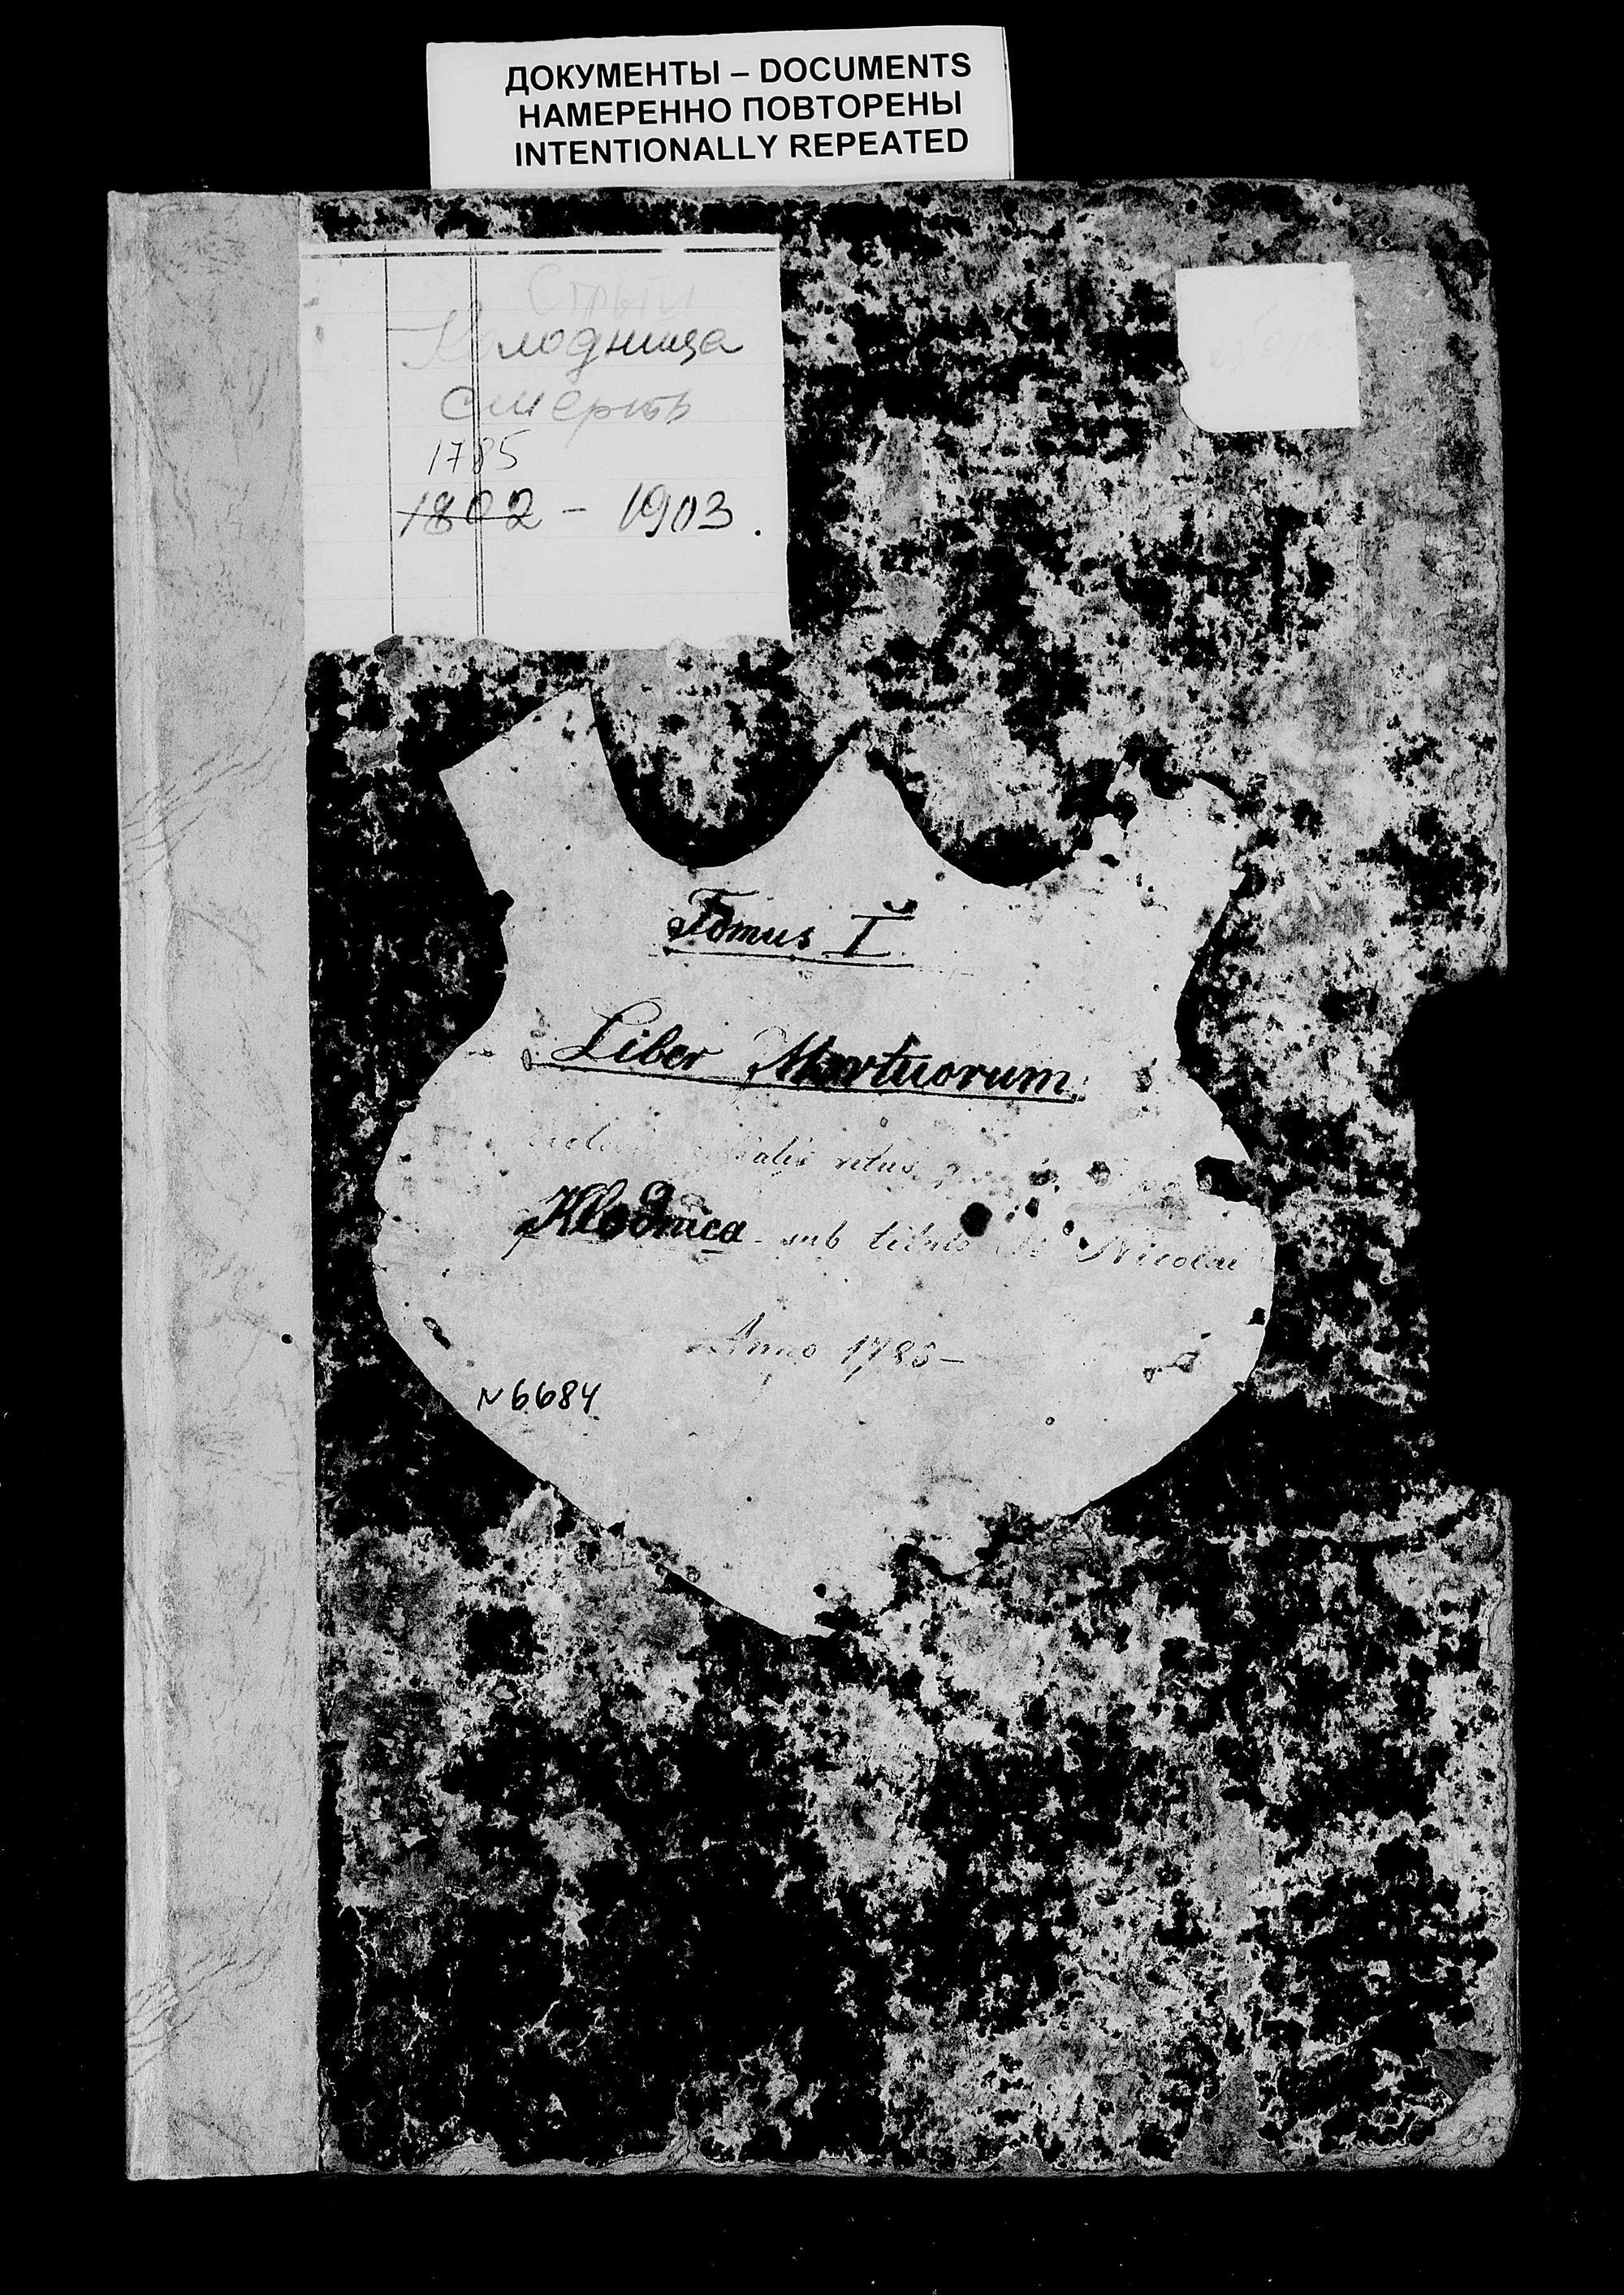 ДОКУМЕНТЫ – DOCUMENTS
НАМЕРЕННО ПОВТОРЕНЫ
INTENTIONALLY REPEATED
Стрый
Колодница
смерть
1785
1802 - 1903.
Tomus I.
Liber Mortuorum
ritus
Klodnica sub titulo St Nicolai
Anno 1785 –
N 6684